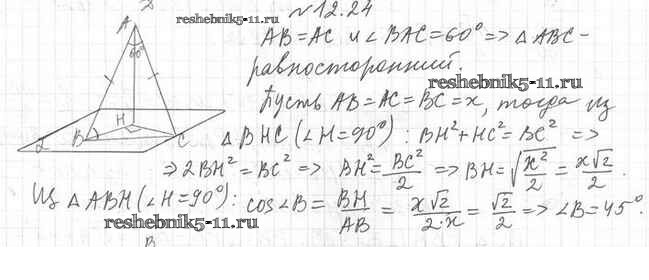 №12.24
reshebnik5-11.ru
AB=AC и ∠BAC=60° => △ABC-
равносторонний.
reshebnik5-11.ru
Пусть AB=AC=BC=x, тогда из
△BHC (∠H=90°): BH²+HC²=BC² =>
=> 2BH²=BC² => BH²=BC²/2 => BH=√(x²/2)=x√2/2.
Из △ABH (∠H=90°): cos∠B=BH/AB=x√2/2·x=√2/2 => ∠B=45°.
reshebnik5-11.ru
A
60°
H
B
C
α
B